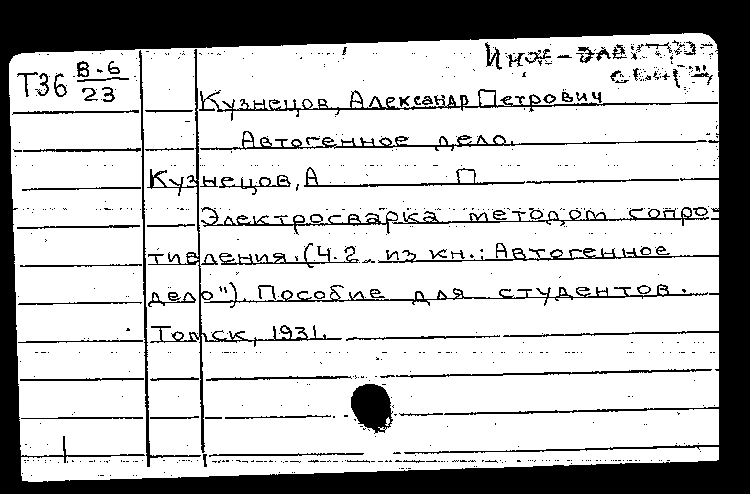 Инж-электро-
Т36 В-6
23
Кузнецов, Александр Петрович
Автогенное дело.
Кузнецов, А П
Электросварка методом сопро-
тивления. (Ч.2 из кн.: Автогенное
дело"). Пособие для студентов.
Томск, 1931.